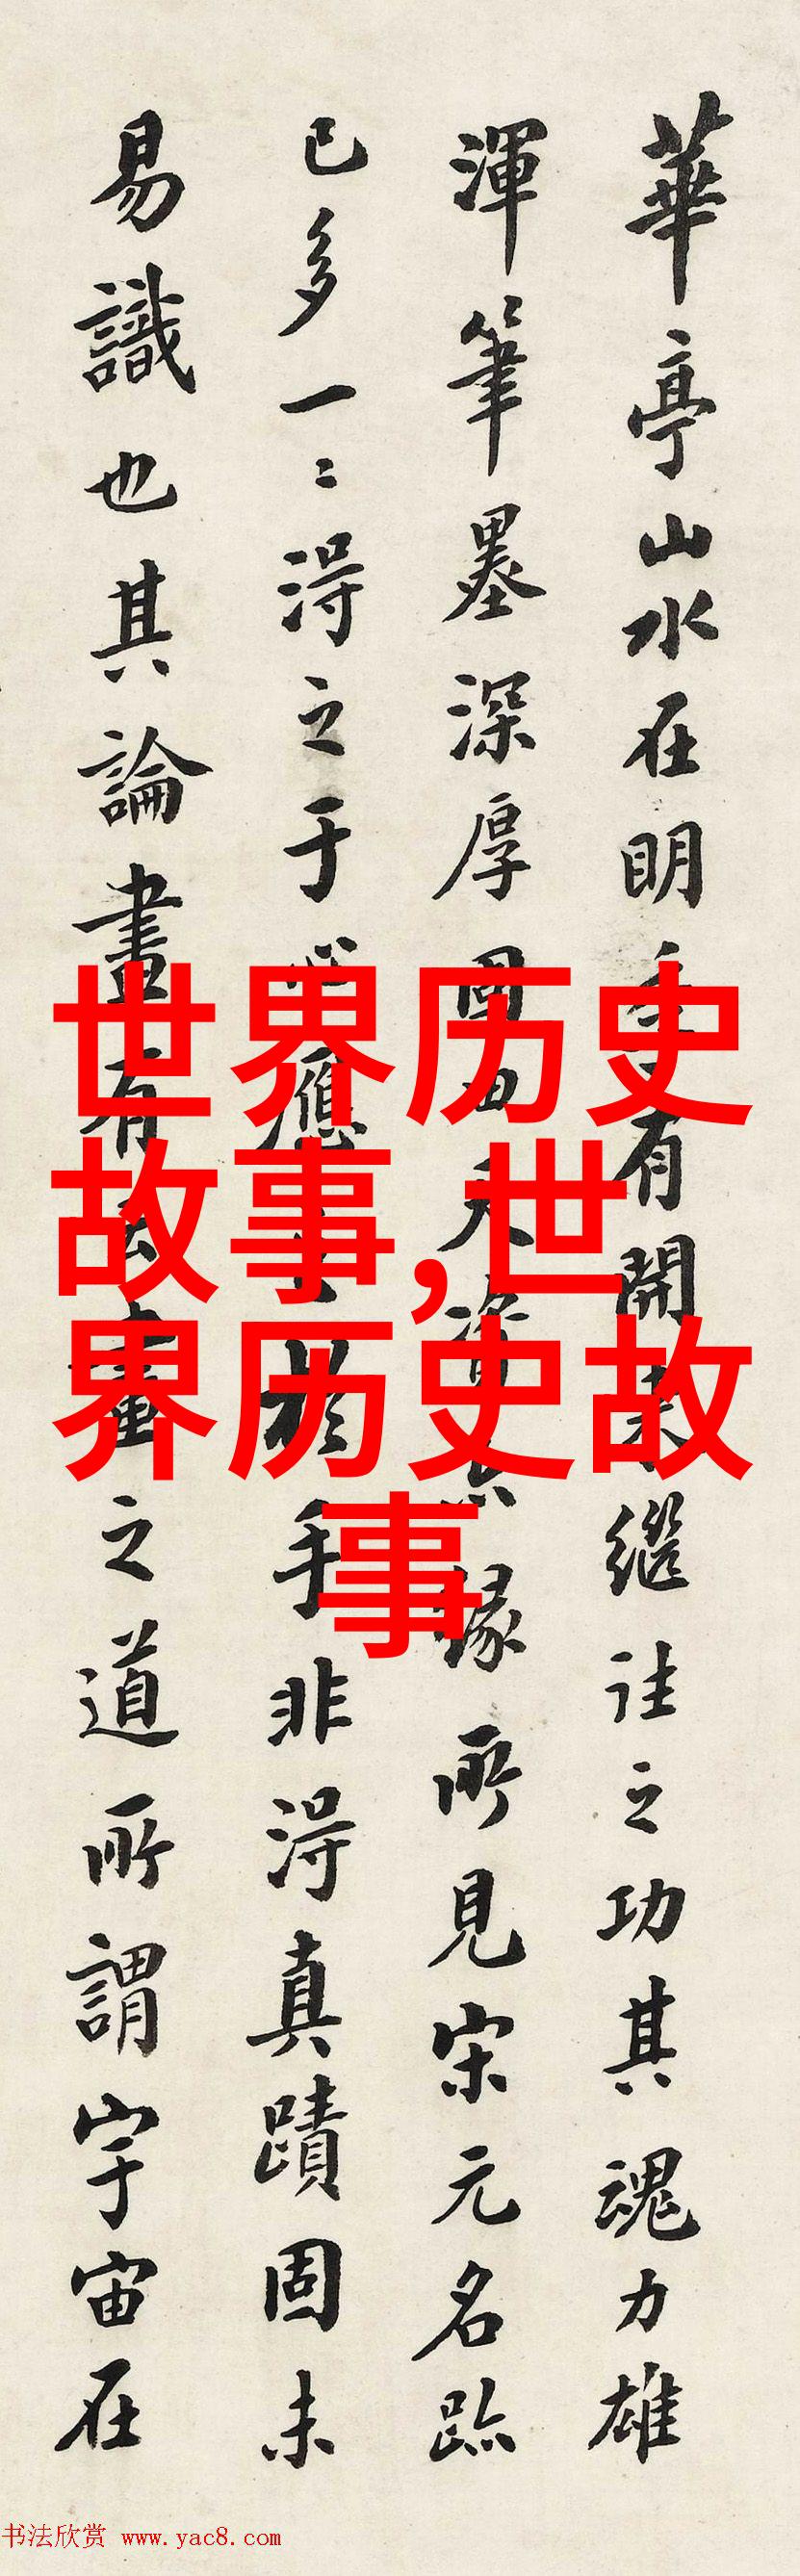 華亭山水在明季有開來繼往之功其魂力雄
渾筆墨深厚固由天資亦緣所見宋元名跡
已多一二得之于心應之於手非得真蹟固未
易識也其論畫有云畫之道所謂宇宙在
世界历史
故事,世
界历史故
事
书法欣赏 www.yac8.com